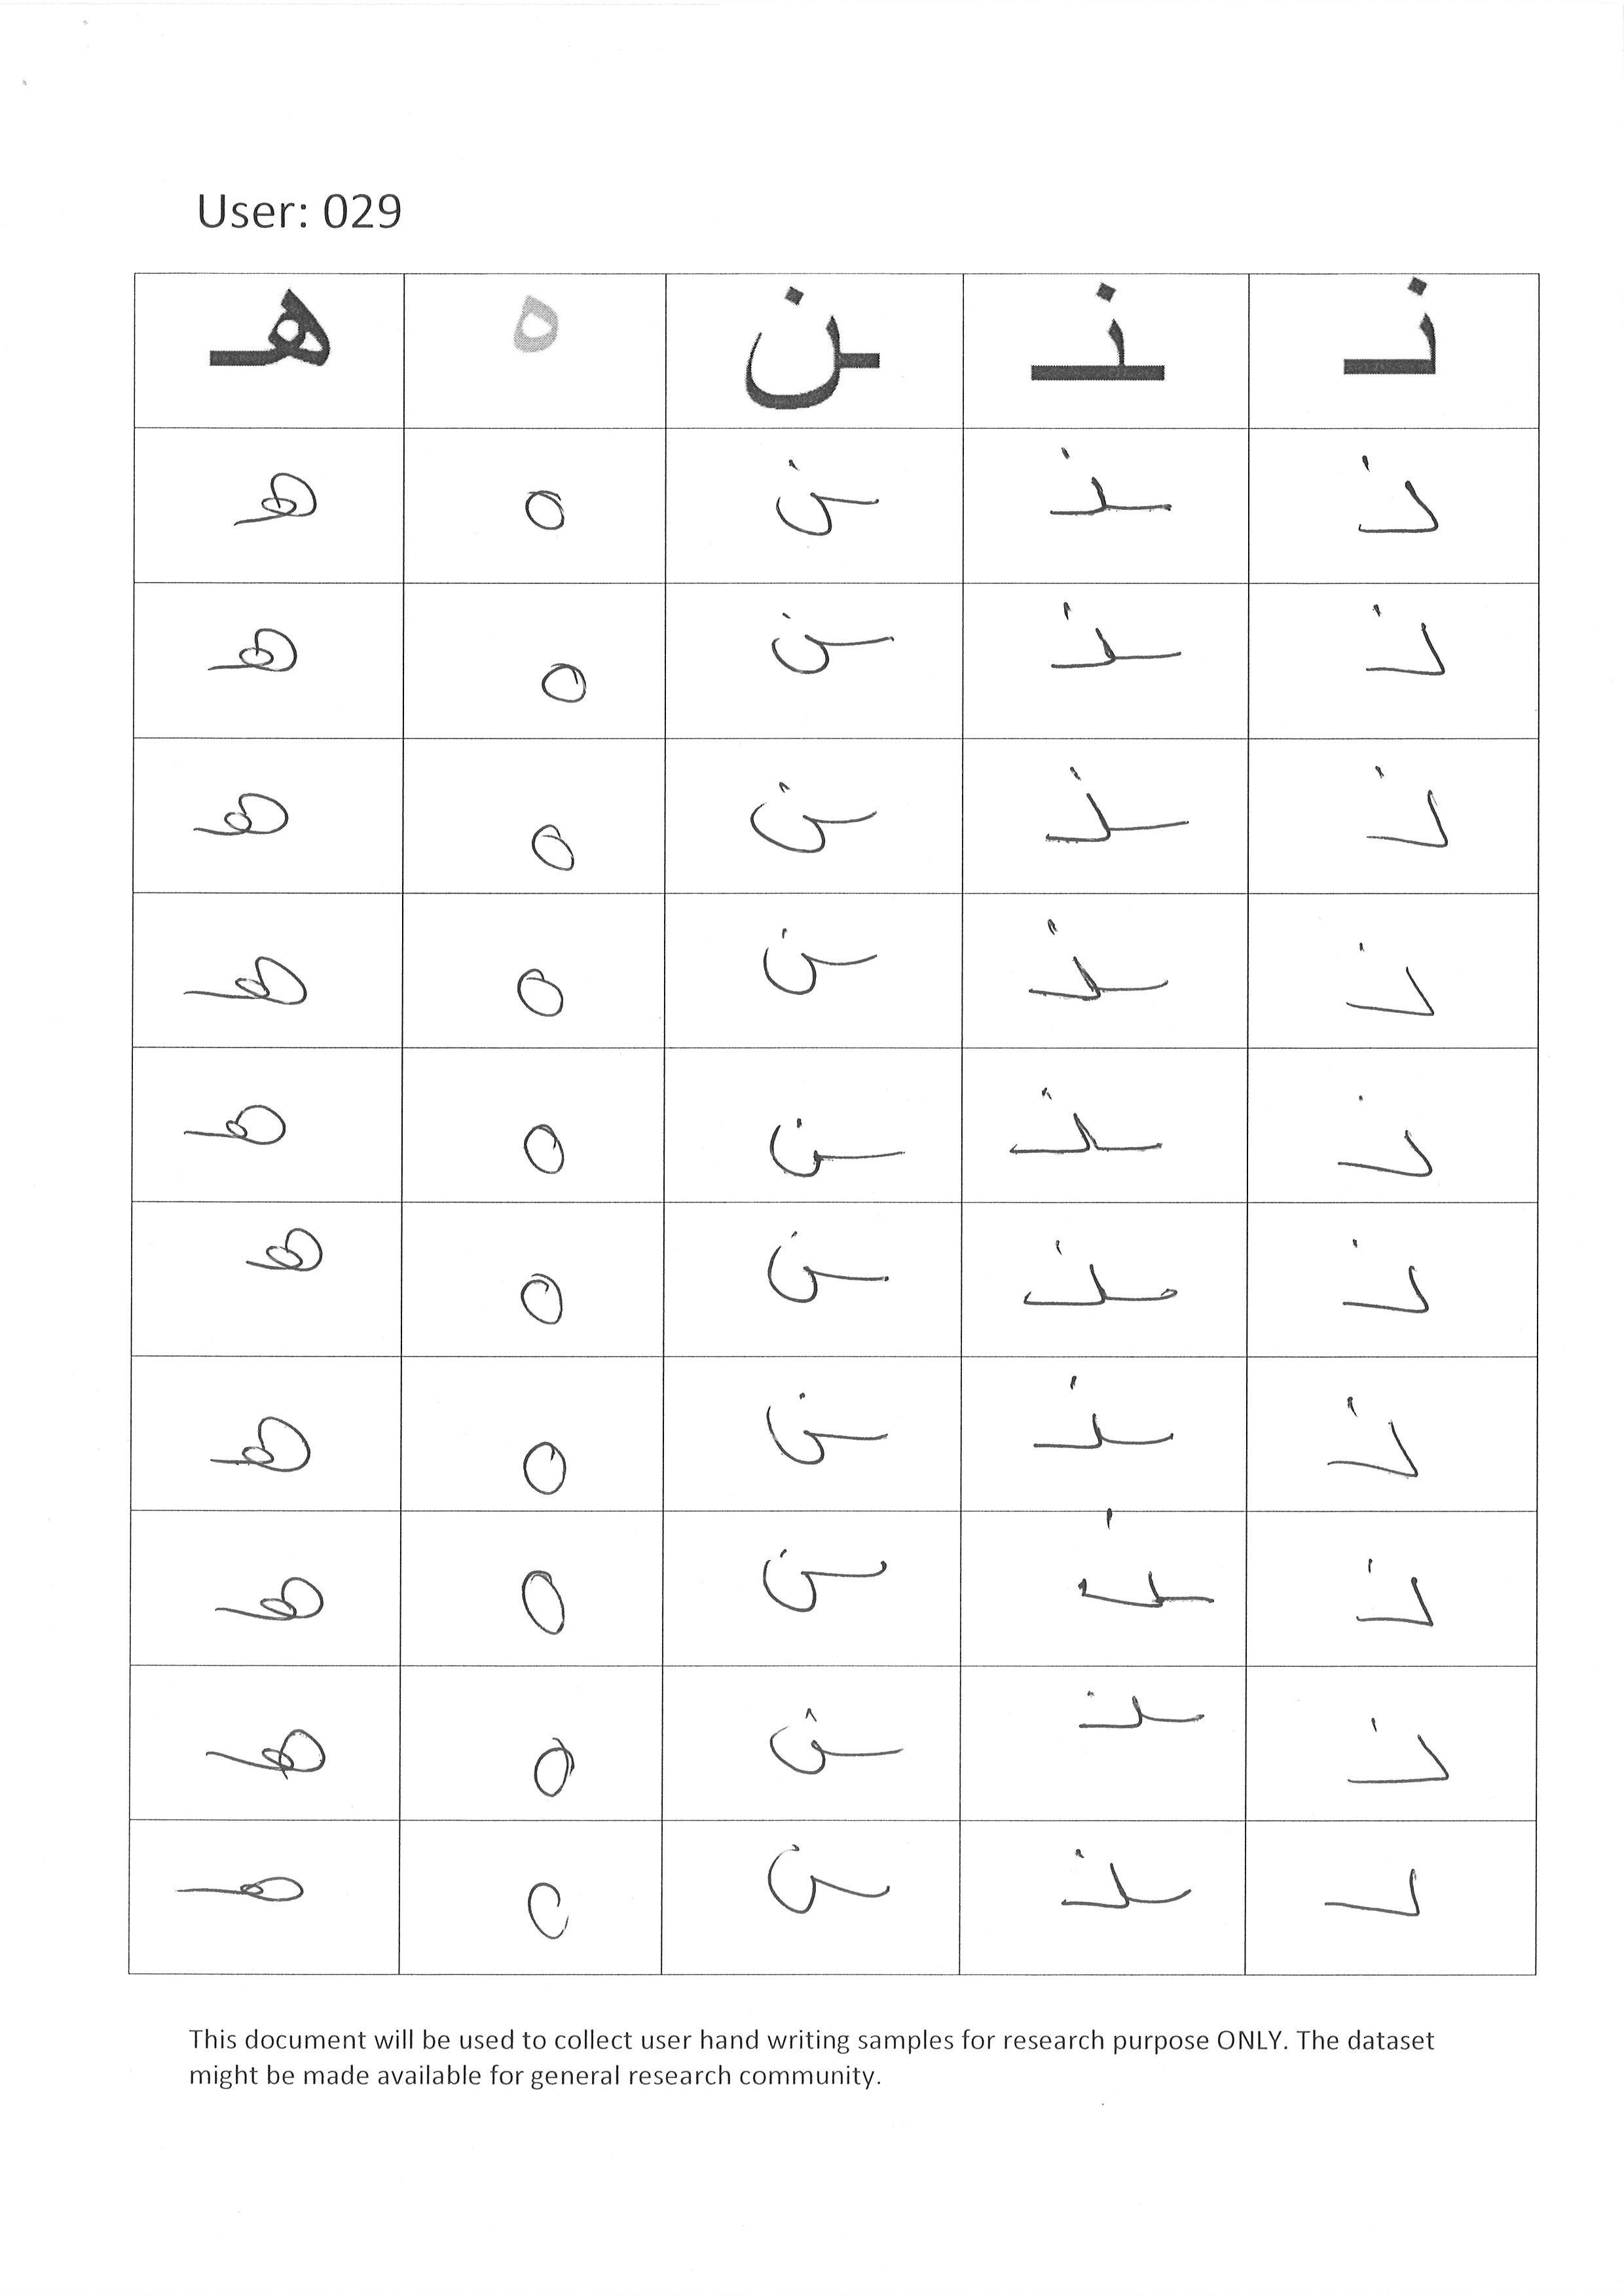 User: 029
نـ ـنـ ـن ه هـ
نـ ـنـ ـن ه هـ
نـ ـنـ ـن ه هـ
نـ ـنـ ـن ه هـ
نـ ـنـ ـن ه هـ
نـ ـنـ ـن ه هـ
نـ ـنـ ـن ه هـ
نـ ـنـ ـن ه هـ
نـ ـنـ ـن ه هـ
نـ ـنـ ـن ه هـ
ىـ ـنـ ـن ه هـ
This document will be used to collect user hand writing samples for research purpose ONLY. The dataset
might be made available for general research community.